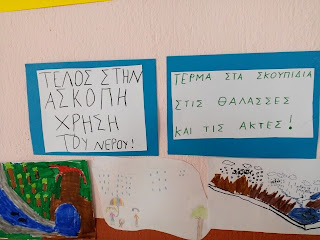 ΤΕΛΟΣ ΣΤΗΝ
ΑΣΚΟΠΗ
ΧΡΗΣΗ
ΤΟΥ ΝΕΡΟΥ!
ΤΕΡΜΑ ΣΤΑ ΣΚΟΥΠΙΔΙΑ
ΣΤΙΣ ΘΑΛΑΣΣΕΣ
ΚΑΙ ΤΙΣ ΑΚΤΕΣ!